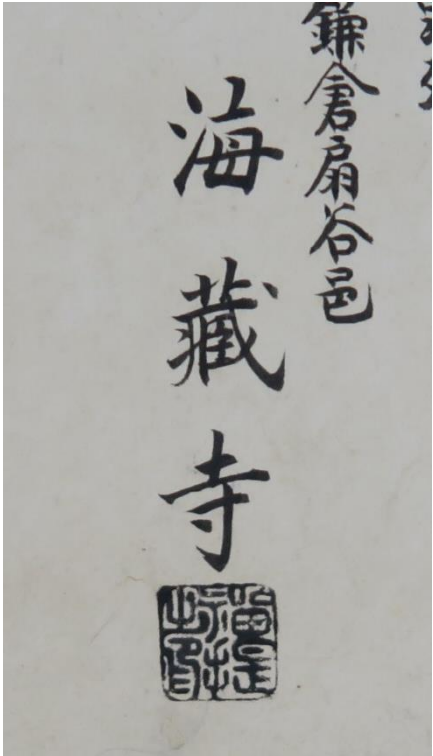 鎌倉扇谷邑
海藏寺